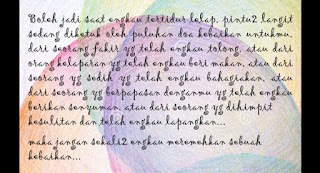 Boleh jadi saat engkau tertidur lelap, pintu2 langit
sedang diketuk oleh puluhan doa kebaikan untukmu,
dari seorang fakir yg telah engkau tolong, atau dari
orang kelaparan yg telah engkau beri makan, atau dari
seorang yg sedih yg telah engkau bahagiakan, atau
dari seorang yg berpapasan denganmu yg telah engkau
berikan senyuman, atau dari seorang yg dihimpit
kesulitan dan telah engkau lapangkan...
maka jangan sekali2 engkau meremehkan sebuah
kebaikan...